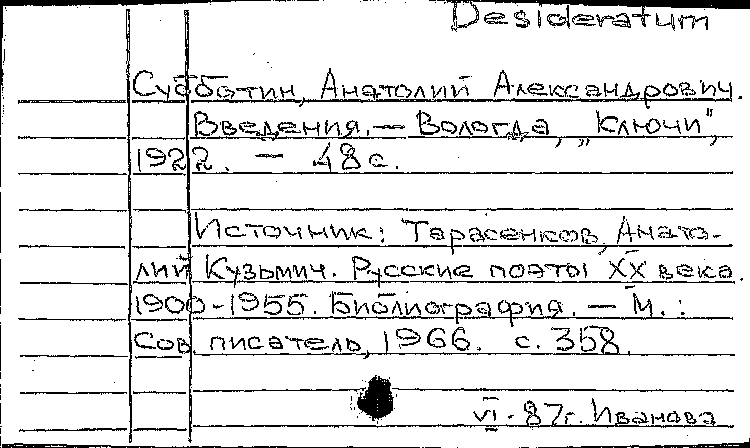 Desideratum
Субботин, Анатолий Александрович.
Введения. — Вологда, „Ключи",
1922. — 48 с.
Источник: Тарасенков, Анато-
лий Кузьмич. Русские поэты XX века.
1900-1955. Библиография. — М.:
Сов. писатель, 1966. с. 358.
VI - 87г. Иванова